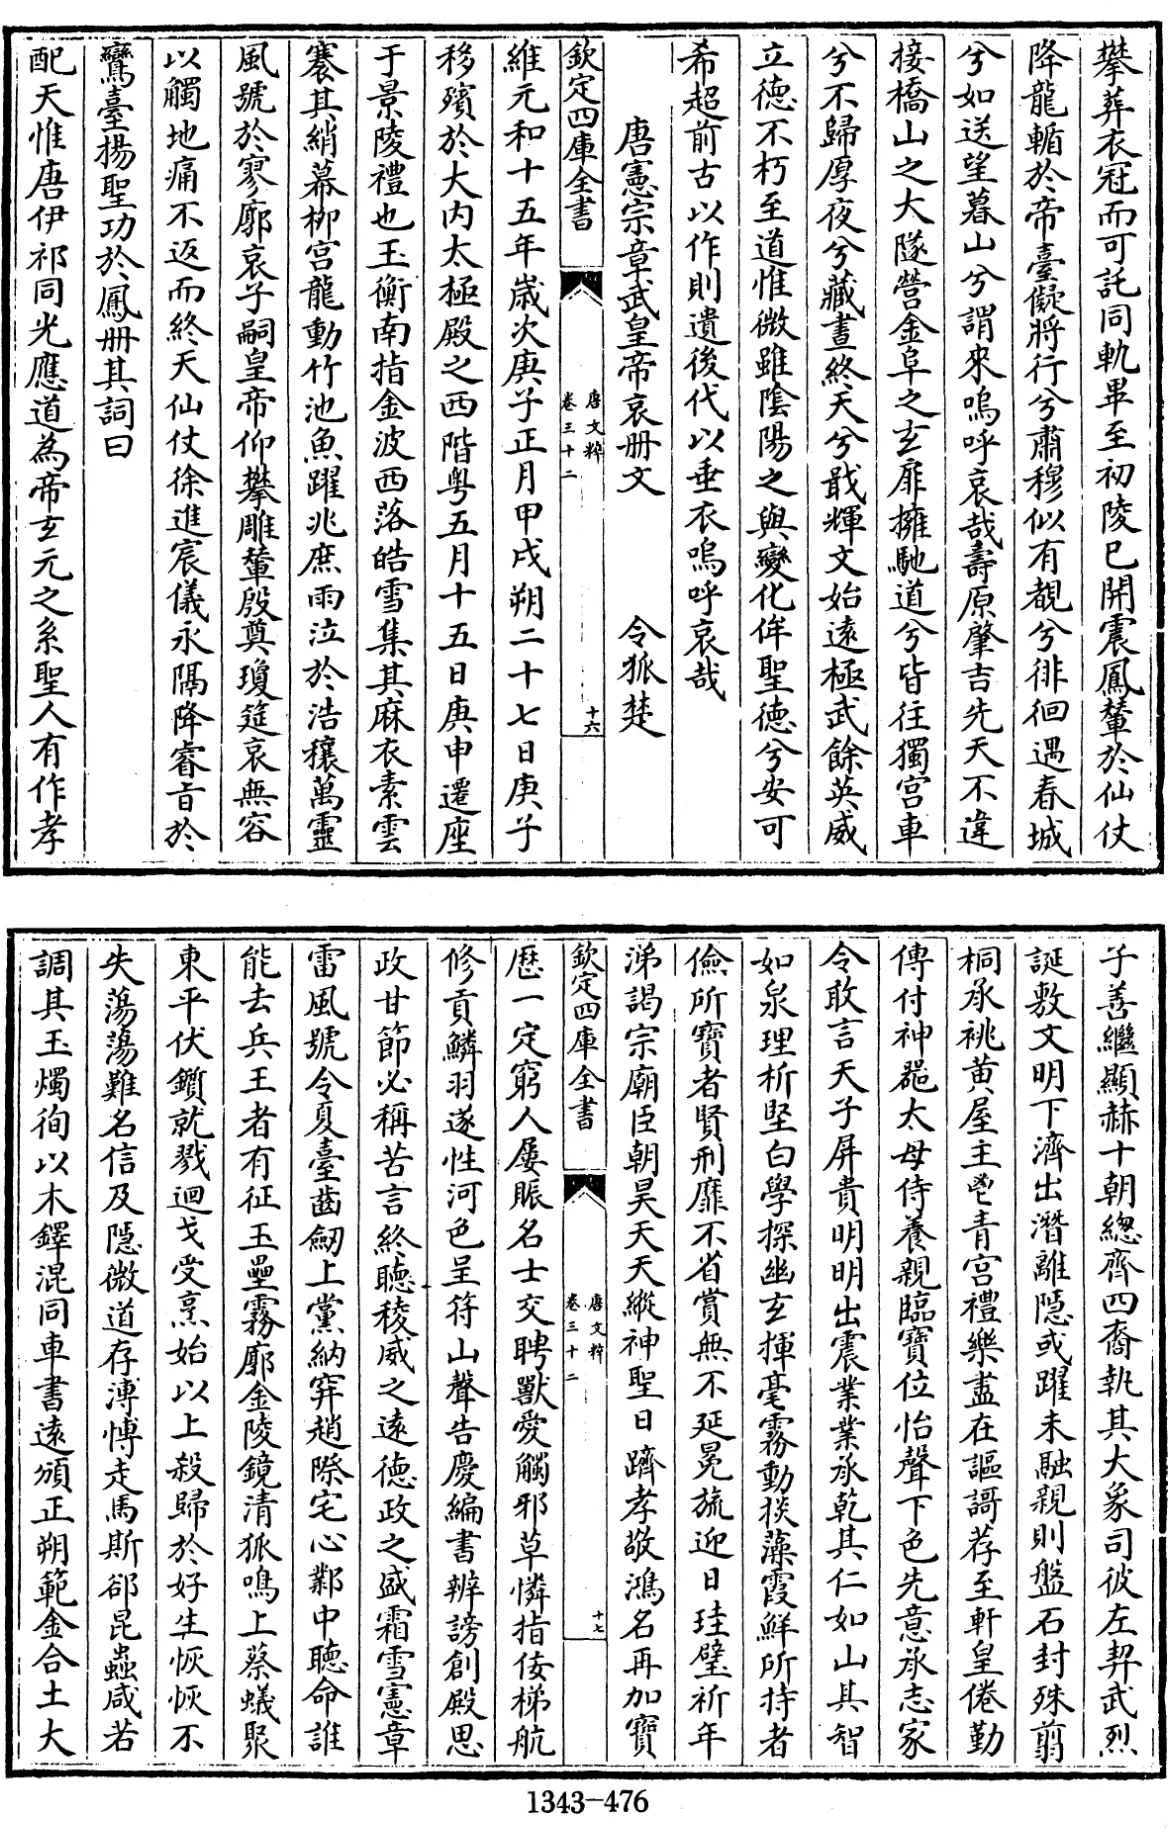 攀葬衣冠而可託同軌畢至初陵已開震鳳輦於仙仗
降龍輴於帝臺儼將行兮肅穆似有覩兮徘徊遇春城
兮如送望暮山兮謂來嗚呼哀哉壽原肇吉先天不違
接橋山之大隧營金阜之玄扉擁馳道兮皆往獨宮車
兮不歸厚夜兮藏晝終天兮戢輝文始遠極武餘英威
立德不朽至道惟微雖陰陽之與變化侔聖德兮安可
希超前古以作則遺後代以垂衣嗚呼哀哉
唐憲宗章武皇帝哀册文 令狐楚
欽定四庫全書
唐文粹
卷三十二
十六
維元和十五年歲次庚子正月甲戌朔二十七日庚子
移殯於大内太極殿之西階粤五月十五日庚申遷座
于景陵禮也玉衡南指金波西落皓雪集其麻衣素雲
褰其綃幕柳宮龍動竹池魚躍兆庶雨泣於浩穰萬靈
風號於寥廓哀子嗣皇帝仰攀雕輦殷奠瓊筵哀無容
以觸地痛不返而終天仙仗徐進宸儀永隔降睿旨於
鸞臺揚聖功於鳳册其詞曰
配天惟唐伊祁同光應道為帝玄元之系聖人有作孝
子善繼顯赫十朝總齊四裔執其大象司彼左契武烈
誕敷文明下濟出潛離隱或躍未融親則盤石封殊翦
桐承祧黄屋主鬯青宮禮樂盡在謳謌荐至軒皇倦勤
傳付神器太母侍養親臨寶位怡聲下色先意承志家
令敢言天子屏貴明明出震業業承乾其仁如山其智
如泉理析堅白學探幽玄揮毫霧動掞藻霞鮮所持者
儉所寶者賢刑靡不省賞無不延冕旒迎日珪璧祈年
涕謁宗廟臣朝昊天天縱神聖日躋孝敬鴻名再加寶
欽定四庫全書
唐文粹
卷三十二
十七
厯一定窮人屢賑名士交聘獸愛觸邪草憐指佞梯航
修貢鱗羽遂性河色呈符山聲告慶編書辨謗創殿思
政甘節必稱苦言終聽稜威之遠德政之盛霜雪憲章
雷風號令夏臺齒劒上黨納穽趙際宅心鄴中聽命誰
能去兵王者有征玉壘霧廓金陵鏡清狐鳴上蔡蟻聚
東平伏鑕就戮迴戈受烹始以上殺歸於好生恢恢不
失蕩蕩難名信及隱微道存溥愽走馬斯郤昆蟲咸若
調其玉燭徇以木鐸混同車書遠頒正朔範金合土大
1343-476